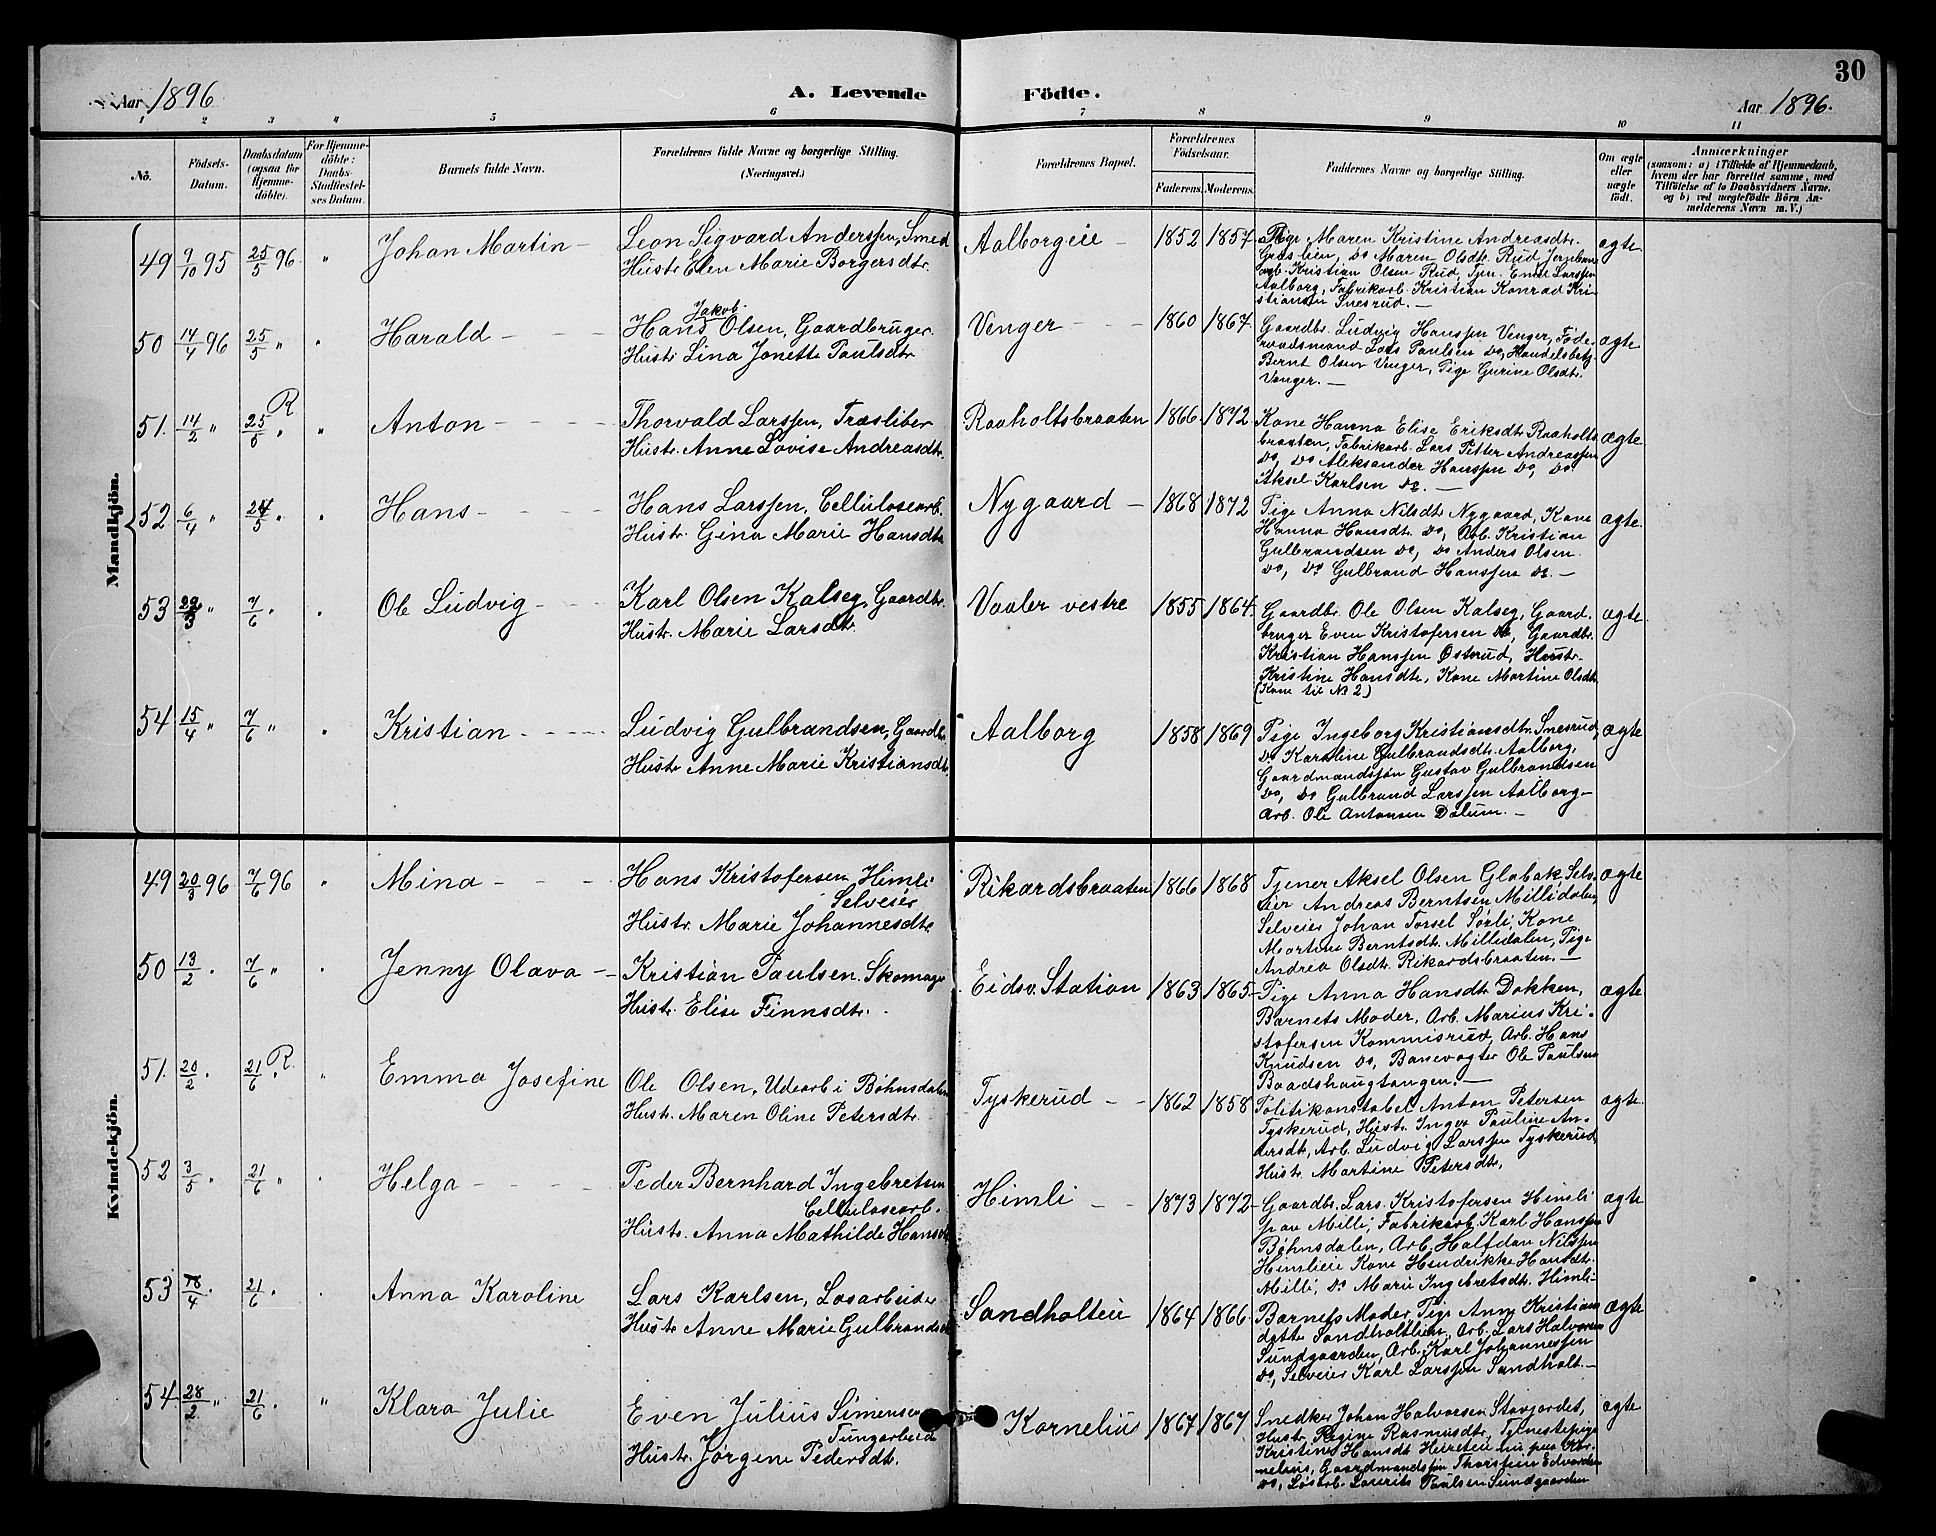 30
Aar 1896
A. Levende Födte.
Aar 1896.
1 2 3 4 5 6 7 8 9 10 11
No.
Födsels-Datum.
Daabsdatum (ogsaa for Hjemme-döbte).
For Hjemme-döbte: Daabs-Stadfæstel-ses Datum.
Barnets fulde Navn.
Forældrenes fulde Navne og borgerlige Stilling.
(Næringsvei.)
Forældrenes Bopæl.
Forældrenes Födselsaar.
Faderens. Moderens.
Faddernes Navne og borgerlige Stilling.
Om ægte eller uægte födt.
Anmærkninger
(saasom: a) i Tilfælde af Hjemmedaab, hvem der har forrettet samme, med Tilföielse af to Daabsvidners Navne, og b) ved uægtefödte Börn An-melderens Navn m. V.)
Mandkjön.
49 9/10 95 25/5 96 " Johan Martin – Leon Sigvard Anderssen, Smed Aalborgeie – 1852 1857 Pige Maren Kristine Andreasdtr. ægte
Hustr. Elen Marie Borgersdtr.
Græslien, Do Maren Olsdtr. Rud, Jernbane
arb. Kristian Olsen Rud, Tjen. Emil Larssen
Aalborg, Fabrikarb. Kristian Konrad Kri-
stiansen Snesrud. –
50 14/4 96 25/5 " " Harald – Hans Jakob Olsen, Gaardbruger. Venger – 1860 1867. Gaardbr. Ludvig Hanssen Venger, Föde- ægte
Hustr. Lina Jonette Paulsdtr.
raadsmand Lars Paulsen Do, Handelsbetj.
Bernt Olsen Venger, Pige Gurine Olsdtr.
Venger. –
51. 14/2 " 25/5 " R " Anton – Thorvald Larssen, Træsliber Raaholtsbraaten 1866. 1872. Kone Hanna Elise Eriksdtr. Raaholts ægte
Hustr. Anne Lovise Andreasdtr.
braaten, Fabrikarb. Lars Petter Andreassen
Do, Do Aleksander Hanssen Do, Do
Aksel Karlsen Do. –
52 6/4 " 24/5 " " Hans – Hans Larssen, Cellulosearb. Nygaard – 1868 1872 Pige Anna Nilsdtr. Nygaard, Kone ægte
Hustr. Gina Marie Hansdtr.
Hanna Hansdtr. Do, Arb. Kristian
Gulbrandsen Do, Do Anders Olsen
Do, Do Gulbrand Hanssen Do. –
53 29/3 " 7/6 " " Ole Ludvig – Karl Olsen Kalseg, Gaardbr. Vaaler vestre 1855 1864. Gaardbr. Ole Olsen Kalseg, Gaard- ægte
Hustr. Marie Larsdtr.
bruger Even Kristofersen Do, Gaardbr.
Kristian Hanssen Østerud, Hustr.
Kristine Hansdtr., Kone Martine Olsdtr.
(Kone til No 2)
54 15/4 " 7/6 " " Kristian – Ludvig Gulbrandsen, Gaardbr. Aalborg 1858 1869 Pige Ingeborg Kristiansdtr. Snesrud, ægte
Hustr. Anne Marie Kristiansdtr.
Do Karoline Gulbrandsdtr. Aalborg,
Gaardmandssøn Gustav Gulbrandsen
Do, Do Gulbrand Larssen Aalborg –
Arb. Ole Antonsen Dalum. –
Kvindekjön.
49 20/3 96 7/6 96 " Mina – Hans Kristofersen Himli Rikardsbraaten 1866 1868 Tjener Aksel Olsen Glabak, Selv- ægte
Selveier
Hustr. Marie Johannesdtr.
eier Andreas Berntsen Millidalen,
Selveier Johan Torsel Sørli, Kone
Martine Berntsdtr. Millidalen, Pige
Andrea Olsdtr. Rikardsbraaten. –
50 13/2 " 7/6 " " Jenny Olava – Kristian Paulsen. Skomager Eidsv. Station 1863 1865 Pige Anna Hansdtr. Dokken, ægte
Hustr. Elise Finnsdtr.
Barnets Moder, Arb. Marius Kri-
stofersen Kommisrud, Arb. Hans
Knudsen Do, Banevogter Ole Paulsen
Baadshaugtangen. –
51. 20/2 " 21/6 " R. " Emma Josefine Ole Olsen, Udearb i Bøhnsdalen Tyskerud – 1862 1858 Politikonstabel Anton Petersen ægte.
Hustr. Maren Oline Petersdtr.
Tyskerud, Hustr. Inger Pauline An-
dersdtr, Arb. Ludvig Larssen Tyskerud,
Hustr. Martine Petersdtr.
52 3/5 " 21/6 " " Helga – Peder Bernhard Ingebretsen Himli – 1873 1872 Gaardbr. Lars Kristofersen Himli ægte
Cellulosearb.
Hustr. Anna Mathilde Hansdtr.
paa Milli, Fabrikarb. Karl Hanssen
Bøhnsdalen, Arb. Halfdan Nilssen
Himlieie Kone Hendrikke Hansdtr.
Milli, Do Marie Ingebretsdtr. Himli –
53 18/4 " 21/6 " " Anna Karoline Lars Karlsen, Løsarbeider Sandholteie 1864 1866. Barnets Moder, Pige Anne Kristians ægte
Hustr Anne Marie Gulbrandsdtr.
datter Sandholteien, Arb. Lars Halvorsen
Sundgaarden, Arb. Karl Johannessen
Do, Selveier Karl Larssen Sandholt. –
54 28/2 " 21/6 " Klara Julie Even Julius Simensen Kornelius 1867 1867 Snedker Johan Halvorsen Stavjordet, ægte
Tungarbeider
Hustr. Jørgine Pedersdtr.
Hustr. Regine Rasmusdtr, Tjenestepige
Kristine Hansdtr. Heireteie nu paa Kor-
nelius, Gaardmandssøn Thorstein Edvardsen
Do, Løsarb. Laurits Paulsen Sundgaarden